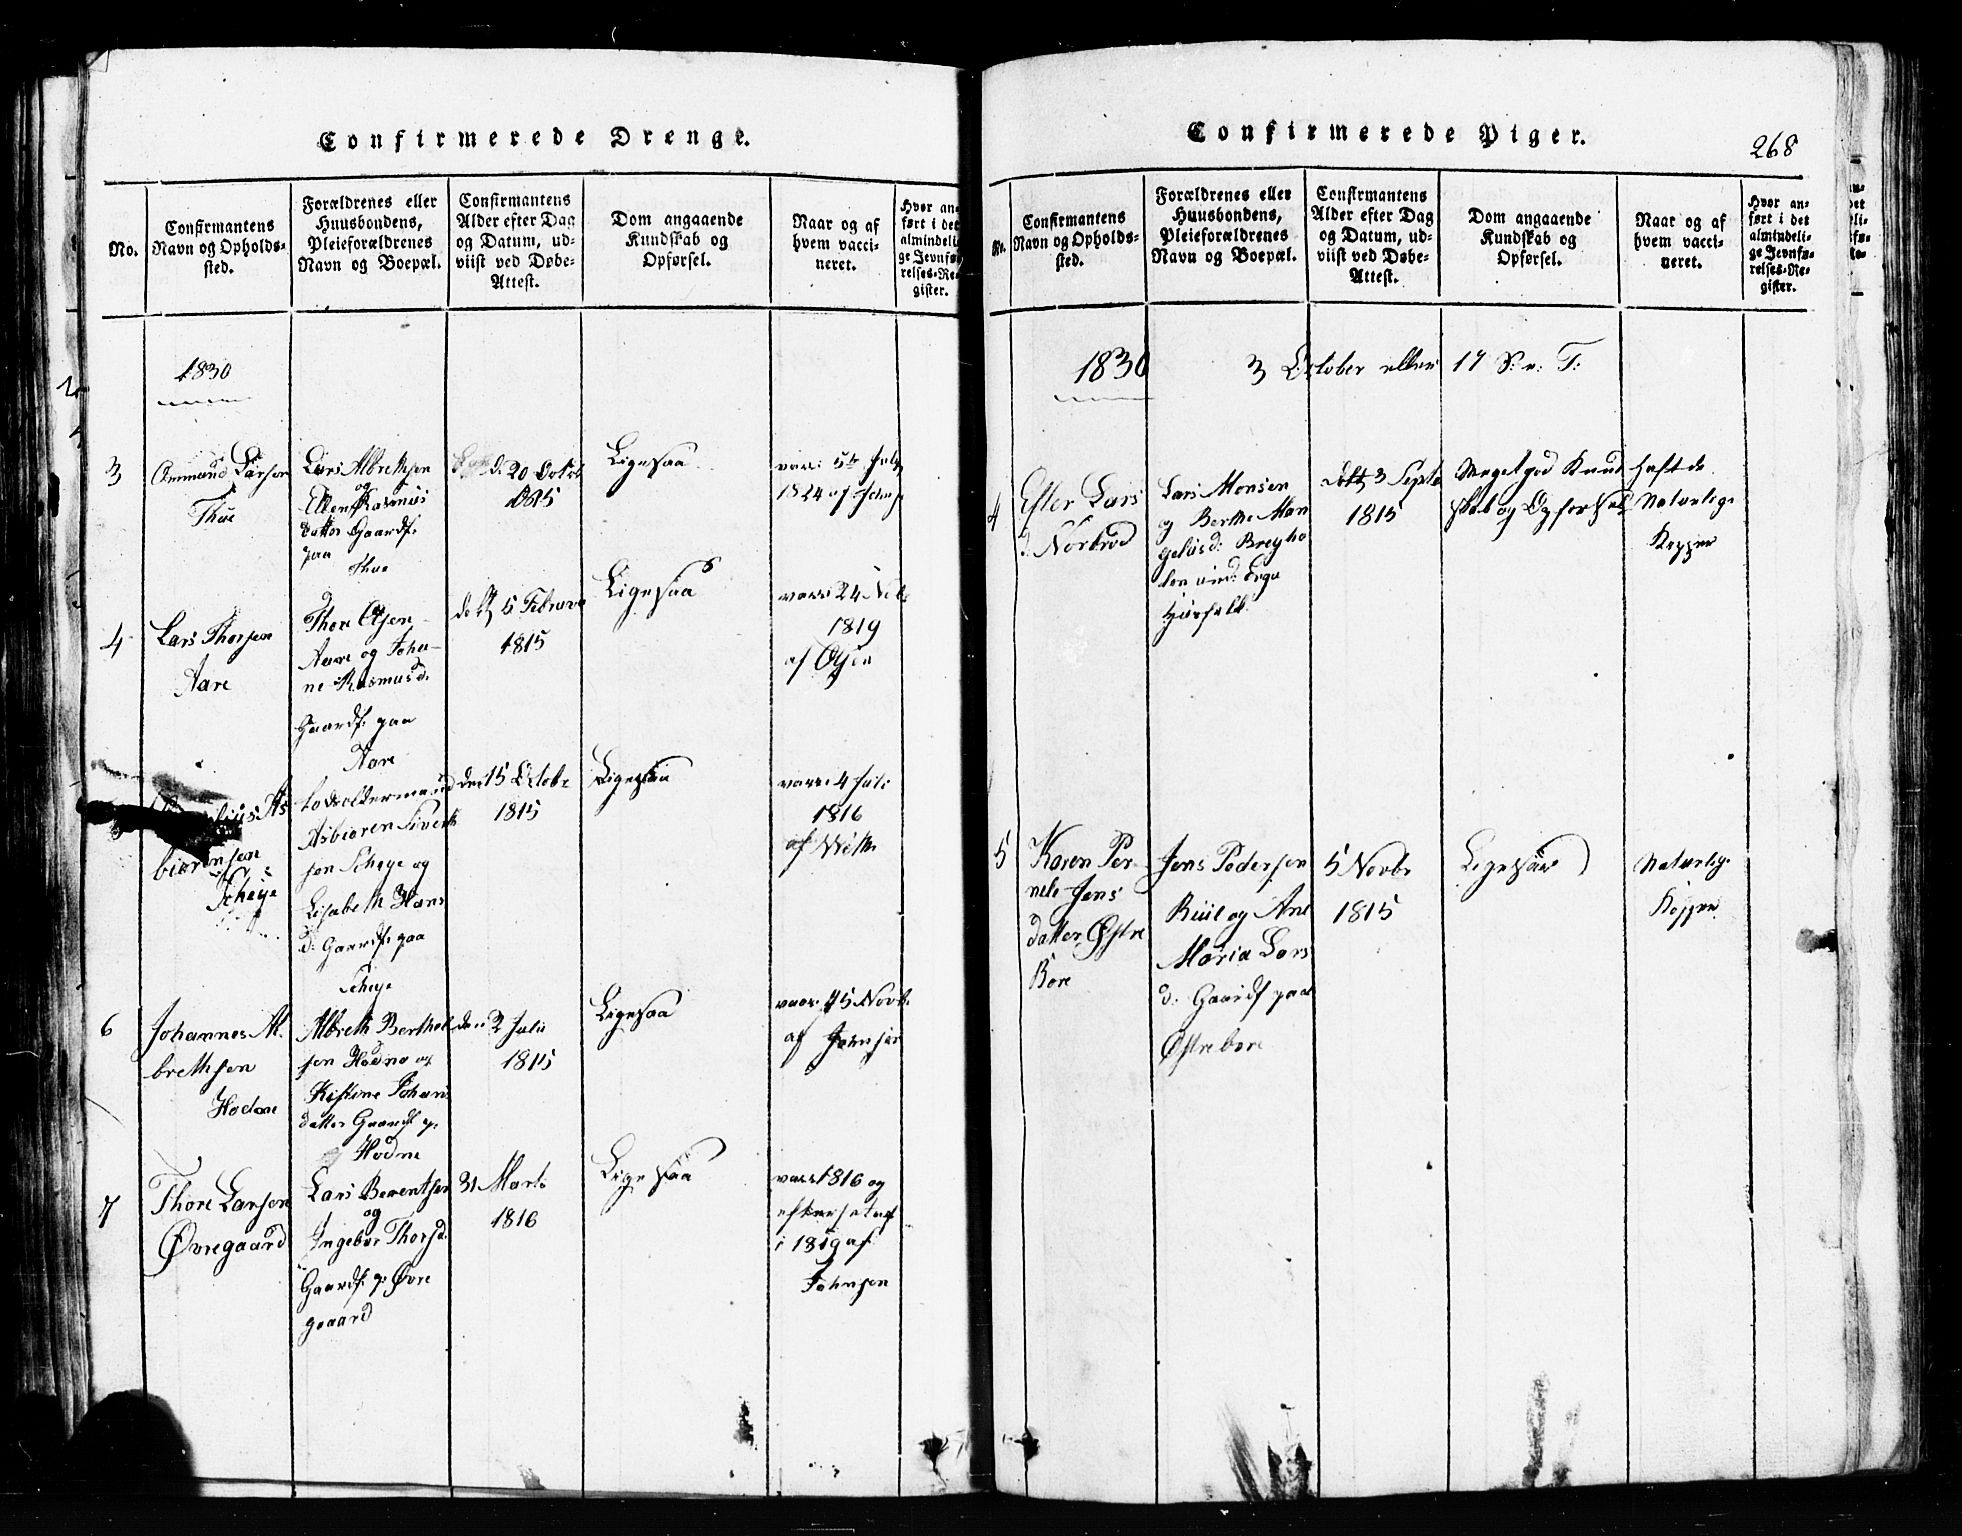 Confirmerede Drenge.
No.
Confirmantens
Navn og Opholds-
sted.
Forældrenes eller
Huusbondens,
Pleieforældrenes
Navn og Boepæl.
Confirmantens
Alder efter Dag
og Datum, ud-
viist ved Døbe-
Attest.
Dom angaaende
Kundskab og
Opførsel.
Naar og af
hvem vacci-
neret.
Hvor an-
ført i det
almindeli-
ge Jevnfø-
relses-Re-
gister.
1830
3
Ommund Larsen
Thue
Lars Albrethsen
og
Ellen Rasmus
datter Gaardf.
paa
Thue
d. 20 Octob
1815
Ligesaa
vacc: 5te July
1824 af Johns
4
Lars Thorsen
Aare
Thore Olsen
Aare og Joha-
ne Rasmusd.
Gaardf: paa
Aare
5 Februar
1815
Ligesaa
vacc: 24 Nob
1819
af Olsen
As
biørensen
Scheje
Lodsoldermand
Asbiøren Sivert
sen Scheje og
Lisabeth Hans
d: Gaardf: paa
Scheje
den 15 Octobr
1815
Ligesaa
vacc: 4 Juli
1816
af
6
Johannes Al
brethsen
Hodne
Albreth Berthel
sen Hodne og
Kistine Johans
datter Gaardf p:
Hodne
den 2 Julii
1815
Ligesaa
vacc: 15 Novb.
af Johnsen
7
Thore Larsen
Øvregaard
Lars Berentsen
og
Ingebor Thorsd.
Gaardf. p: Øvre
gaard
31 Marts
1816
Ligesaa
vacc 1816 og
eftersat
i 1819 af
Johnsen
Confirmerede Piger.
268
Nr.
Confirmantens
Navn og Opholds-
sted.
Forældrenes eller
Huusbondens,
Pleieforældrenes
Navn og Boepæl.
Confirmantens
Alder efter Dag
og Datum, ud-
viist ved Døbe-
Attest.
Dom angaaende
Kundskab og
Opførsel.
Naar og af
hvem vacci-
neret.
Hvor an-
ført i det
almindeli-
ge Jevnfø-
relses-Re-
gister.
1830
3 October eller 17 S: e: T:
4
Ester Lars
d. Nørbrød
Lars Monsen
og Berthe Man
geliusd:
3 Septb
1815
Meget god Kund
skab og Opførsel
Haft de
Naturlige
Kopper
5
Karen Per
nele Jens
datter Østre
Børe
Jens Pedersen
Riiil og Ane
Maria Lars
d: Gaardf paa
Østrebøre
5 Novbr
1815
Ligesaa
Naturlige
Kopper